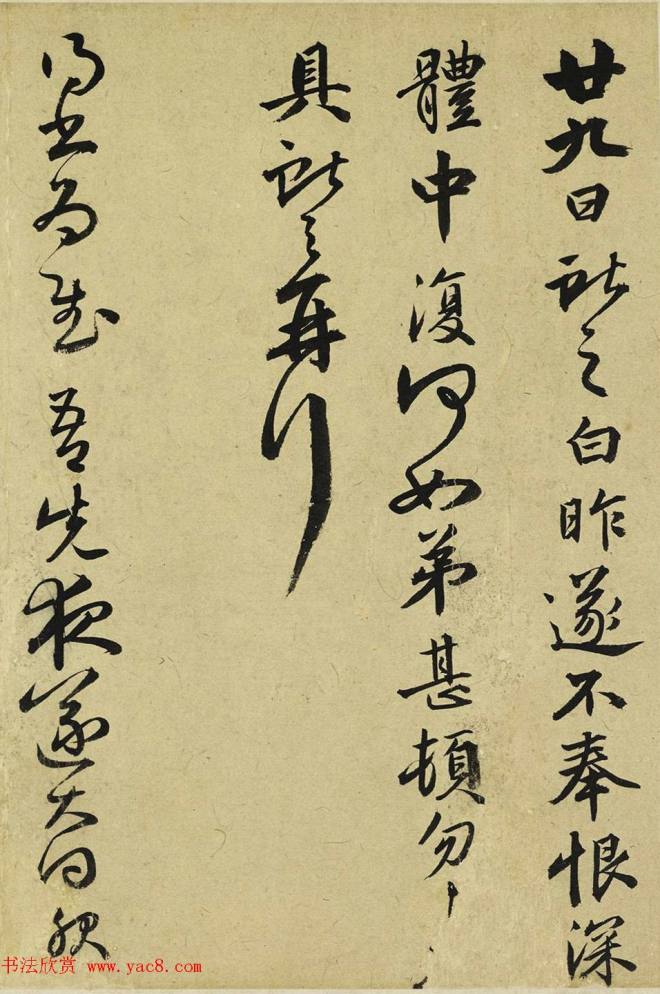 廿九日獻之白昨遂不奉恨深
體中復何如弟甚頓匆匆
具獻之再拜
得書為慰吾先夜遂大得服
书法欣赏 www.yac8.com